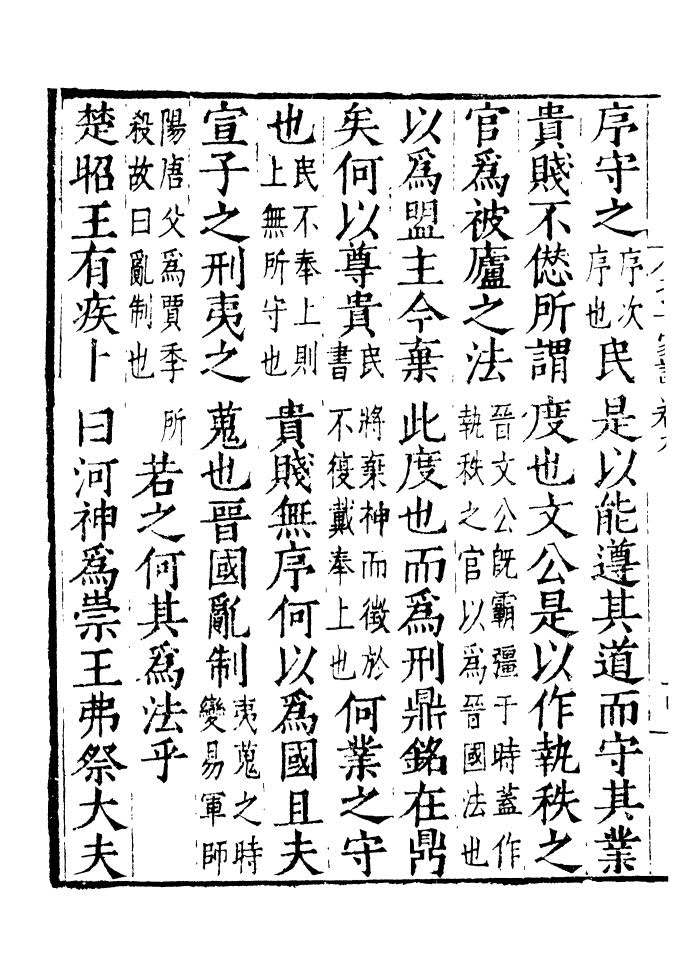 序守之序次序也民是以能遵其道而守其業
貴賤不愆所謂度也文公是以作執秩之
官爲被廬之法晉文公旣霸彊于時蓋作執秩之官以爲晉國法也
以爲盟主今棄此度也而爲刑鼎銘在鼎
矣何以尊貴民將棄神而徵於書不復戴奉上也何業之守
也民不奉上則上無所守也貴賤無序何以爲國且夫
宣子之刑夷之蒐也晉國亂制夷蒐之時變易軍師
陽唐父爲賈季所殺故曰亂制也若之何其爲法乎
楚昭王有疾卜曰河神爲祟王弗祭大夫